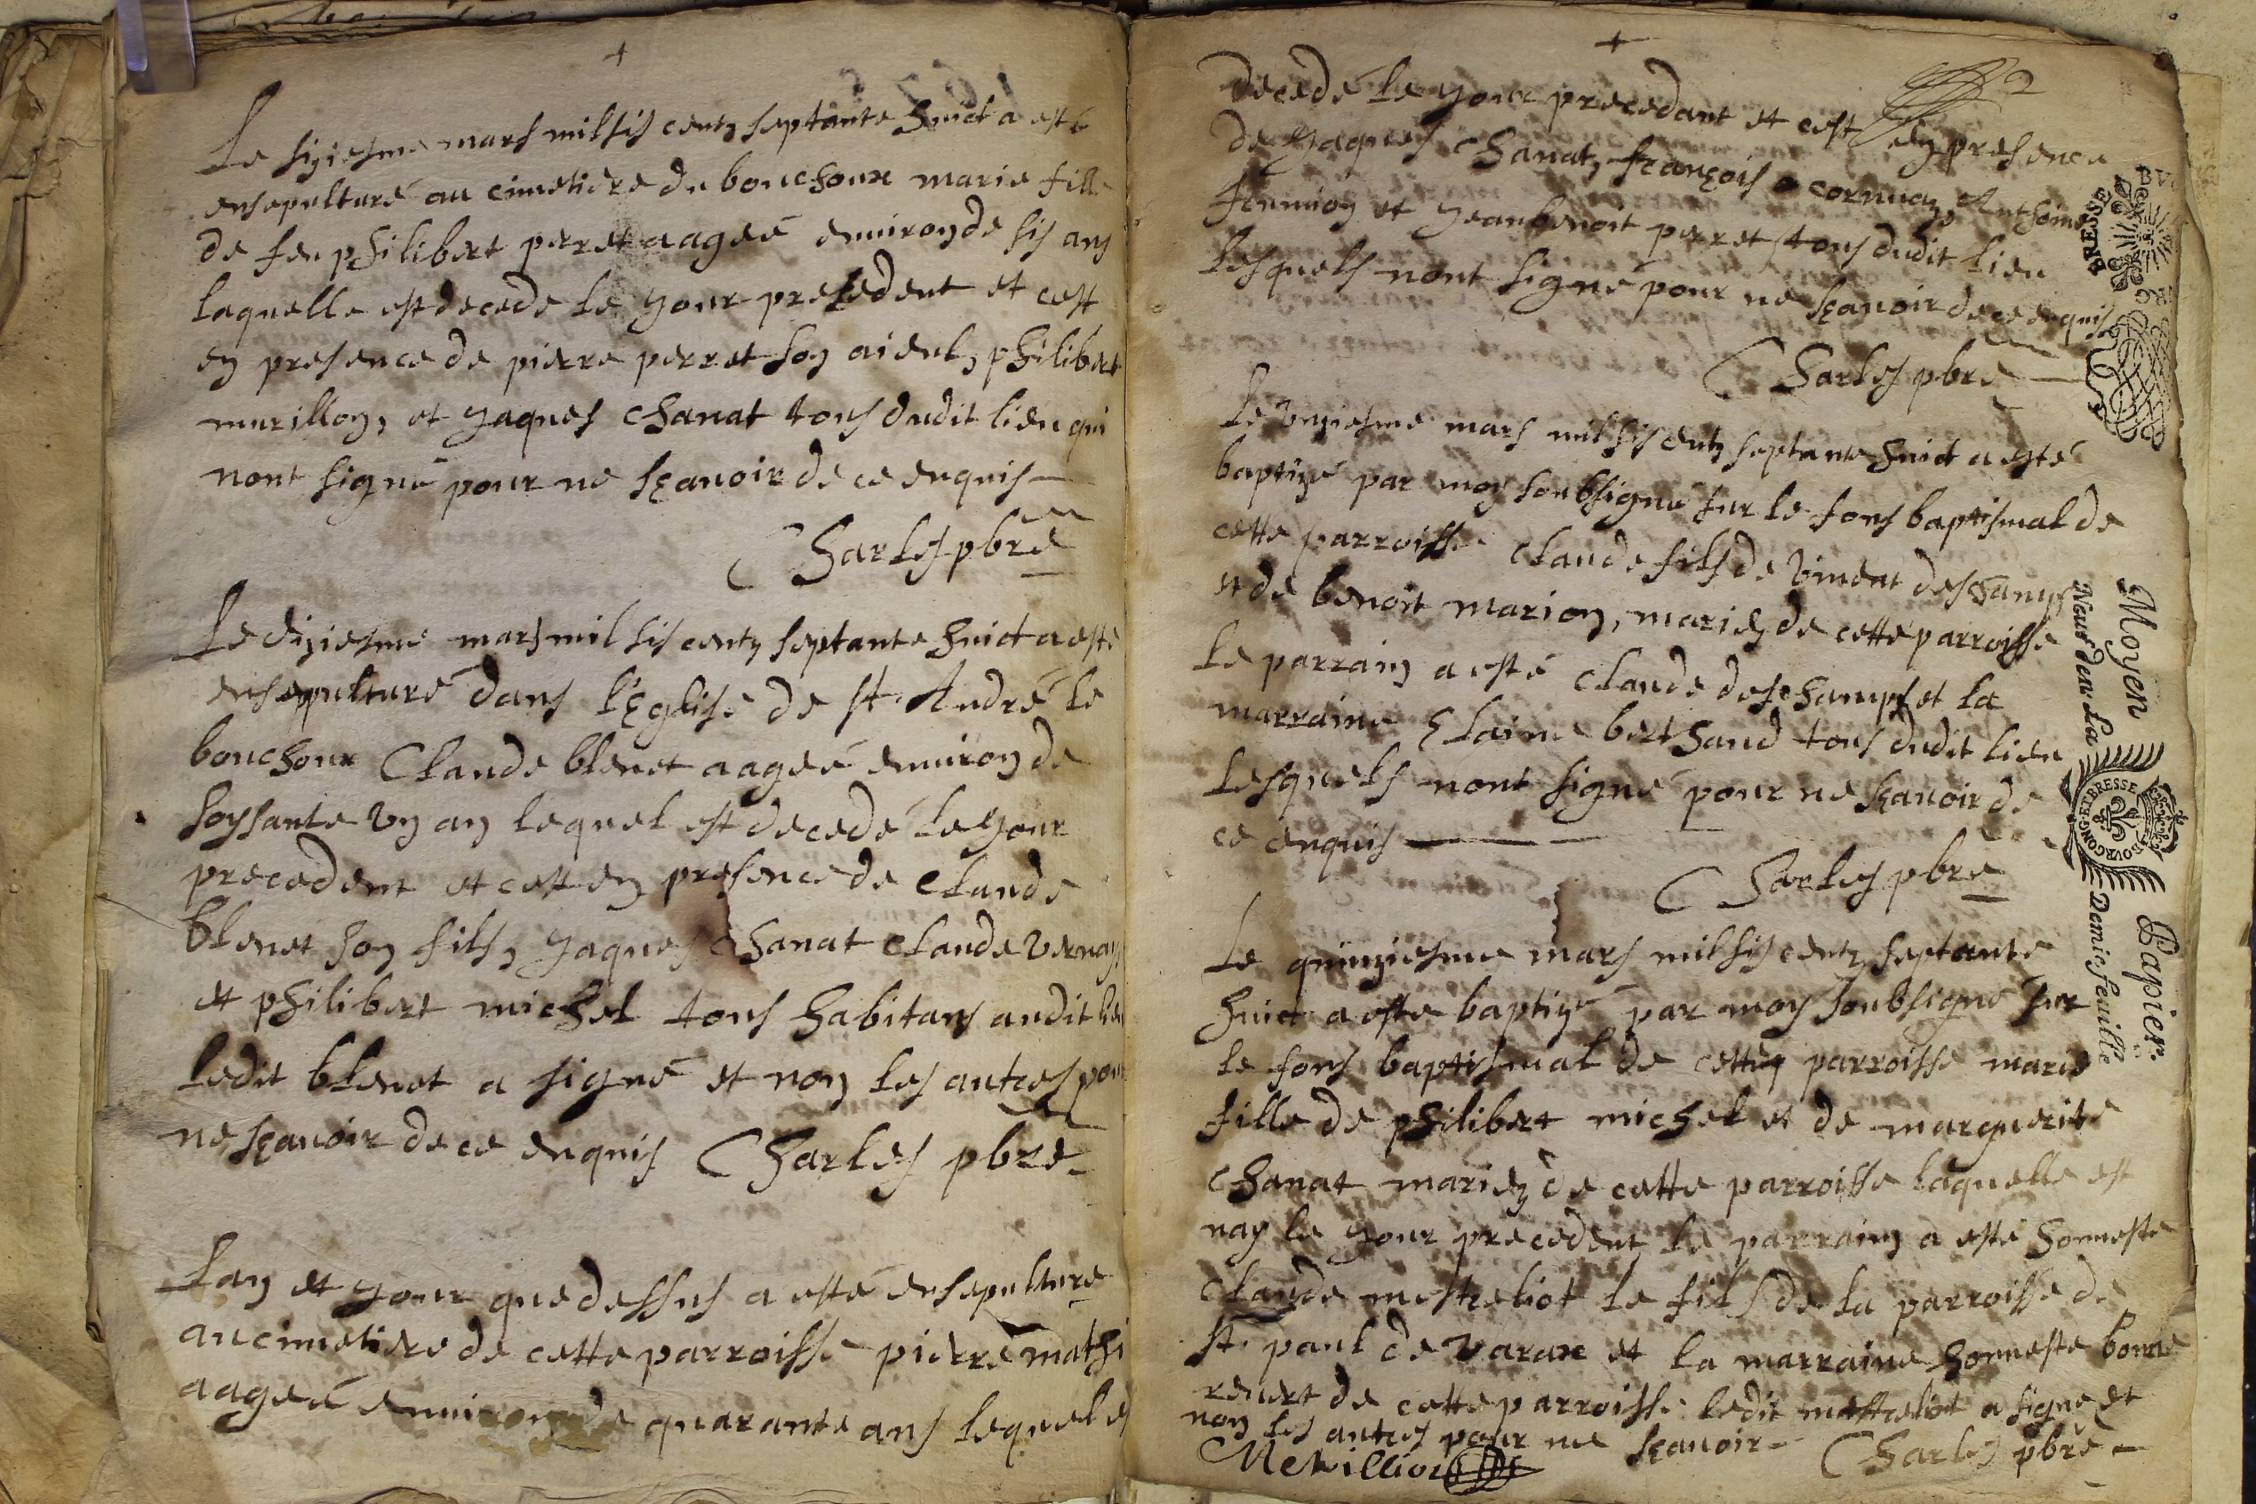 Le siziesme mars mil sis centz septante huict a esté
ensepulturé au cimetiere du bouchoux marie fille
de feu philibert perret aagéé environ de sis ans
laquelle est decedé le jour precedent et cest
en presence de pierre perret son aieul, philibert
murillon, et jaques chanat tous dudit lieu qui
nont signé pour ne sçavoir de ce enquis
Charles pbre
Le diziesme mars mil sis centz septante huict a esté
ensepulturé dans l'Eglise de st. André le
bouchoux Claude blenet aagéé environ de
soyssante un an lequel est decedé le jour
precedent et cest en presence de claude
blenet son fils, jaques chanat claude vernay,
et philibert michel tous habitans audit lieu
ledit blenet a signé et non les autres pour
ne sçavoir de ce enquis Charles pbre
Lan et jour que dessus a esté ensepulturé
au cimetiere de cette parroisse pierre mathi
aagéé environ de quarante ans lequel e
decedé le jour precedant et cest en presence
2
de jaques chanat, françois cornuaz, Anthoine
et jean benoit perret tous dudit lieu
lesquels nont signé pour ne sçavoir de ce enquis
Charles pbre
Le unziesme mars mil sis centz septante huict a esté
baptizé par moy soubsigné sur le fons baptismal de
cette parroisse claude fils de vincent deschamps
et de benoit marion, mariez de cette parroisse
le parrain a esté claude deschamps et la
marraine Claine berthaud tous dudit lieu
lesquels nont signé pour ne sçavoir de
ce enquis
Charles pbre
Le quinziesme mars mil sis centz septante
huict a esté baptizé par moy soubsigné sur
le fons baptismal de cette parroisse marie
fille de philibert michel et de marguerite
chanat mariez de cette parroisse laquelle est
nay le jour precedent le parrain a esté honneste
claude mestreliot le fils de la parroisse de
st. paul de varax et la marraine honneste bonne
revert de cette parroisse ledit mestreliot a signé et
non les autres pour ne sçavoir Charles pbre
BRESSE
Moyen Papier.
Neuf den. La Demie feuille
BOVRGONG. ET BRESSE